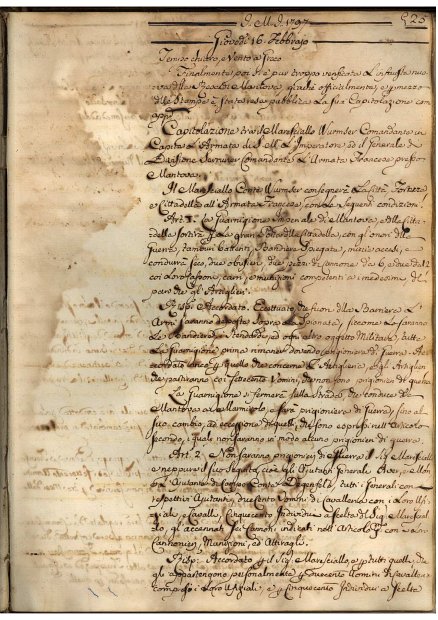 J. M. J. 1797
525
Giovedì 16 Febbrajo
Tempo chiaro, e Vento a Greco
Finalmente poi si è pur troppo verificata l'infausta nuova
della Resa di Mantova, giacchè officialmente, e per mezzo
delle Stampe è stata resa pubblica la sua Capitolazione con
Capitolazione tra il Maresciallo Wurmser Comandante in
Capite l'Armata di S. M. l'Imperatore ed il Generale di
Divisione Serrurier Comandante l'Armata Francese presso
Mantova
Il Maresciallo Conte Wurmser consegnerà la Città, Fortezza
e Cittadella all'Armata Francese, con le seguenti condizioni
Art. 1. La Guarnigione Imperiale di Mantova, e della Cittadella
sortirà per la gran Porta della Cittadella, con gli onori della
Guerra, tamburi battenti, Bandiere spiegate, miccie accese, e
condurrà seco, due obusieri, due pezzi di cannone da 6, e due da 12
coi loro cassoni, carri, e munizioni competenti a' medesimi
gli Artiglieri
Risp. Accordato. Eccettuato, che fuori della Barriera l'
Armi saranno deposte sopra la Spianata, siccome lo saranno
le Bandiere, e Stendardi, ed ogni altro oggetto Militare, tutta
la Guarnigione prima rimaner dovendo prigioniera di Guerra. Accordato
ancor quello che concerne l'Artiglieria, e gli Artiglieri
che partiranno coi settecento Uomini, che non sono prigionieri di guerra
La Guarnigione si fermerà sulla Strada, che conduce da
Mantova a Marmirolo, e sarà prigioniera di Guerra, fino al
suo cambio, ad eccezione di quelli, che sono espressi nell'Articolo
secondo, i quali non saranno in modo alcuno prigionieri di guerra.
Art. 2. Non saranno prigionieri di Guerra il Sig. Maresciallo
e neppure il suo seguito, cioè gli Ajutanti Generale Auer, e
l'Ajutante di Campo Conte Degenfeld, tutti i Generali con i
rispettivi Ajutanti, duecento Uomini di Cavalleria con i loro Uffiziali,
cinquecento Individui a scelta del Sig. Maresciallo,
gli accennati sei Cannoni indicati nell'Articolo con i suoi
Cannonieri, Munizioni, ed Attiragli.
Risp: Accordato per il Sig. Maresciallo, e per tutti quelli che
gli appartengono personalmente, per duecento Uomini di Cavalleria
compresi i loro Uffiziali, e per cinquecento Individui a scelta